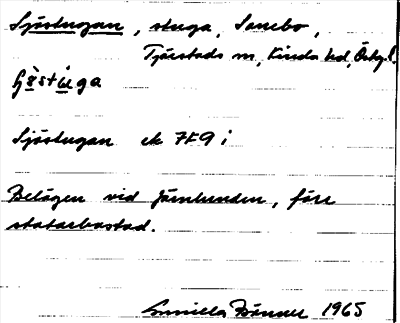 Sjöstugan, stuga, Sannebo,
Tjärstads sn, Kinda hd, Östg.l.
Sjöstugan ek 7F9i
Belägen vid Järnlunden, förr
statarbostad.
Gunilla 1965